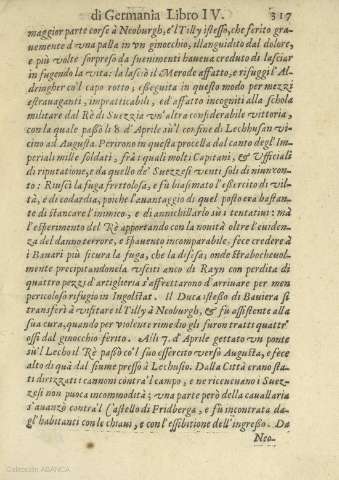 di Germania Libro IV. 317
maggior parte corse à Neoburgh, e'l Tilly istesso, che ferito gra-
uemente d'vna palla in vn ginocchio, illanguidito dal dolore,
e più volte sorpreso da suenimenti haueua creduto di lasciar
in fugendo la vita: la lasciò il Merode affatto, e rifuggì l'Al-
dringher co'l capo rotto; eseguita in questo modo per mezzi
estrauaganti, impratticabili, ed affatto incogniti alla schola
militare dal Rè di Suezzia vn'altra considerabile vittoria,
con la quale passò li 8 d'Aprile sù'l confine di Lechhusan vi-
cino ad Augusta. Perirono in questa procella dal canto degl'Im-
periali mille soldati, frà i quali molti Capitani, & Vfficiali
di riputatione, e da quello de' Suezzesi venti soli di niunron-
to: Riuscì la fuga frettolosa, e fù biasimato l'essercito di vil-
tà, e di codardia, poiche l'auantaggio di quel posto era bastan-
te di stancare l'inimico, e di annichillarlo sù i tentatiui: mà
l'esperimento del Rè apportando con la nouità oltre l'euiden-
za del danno terrore, e spauento incomparabile, fece credere à
i Bauari più sicura la fuga, che la difesa; onde straboccheuol-
mente precipitandone la vscita anco di Rayn con perdita di
quattro pezzi d'artiglieria s'affrettarono d'arriuare per men
pericoloso rifugio in Ingolstat. Il Duca istesso di Bauiera si
transferì à visitare il Tilly à Neoburgh, & fù assistente alla
sua cura, quando per violente rimedio gli furon tratti quattr'
ossi dal ginocchio ferito. Alli 7. d'Aprile gettato vn ponte
sù'l Lecho il Rè passò co'l suo essercito verso Augusta, e fece
alto di quà dal fiume presso à Lechusio. Dalla Città erano sta-
ti dirizzati i cannoni contra'l campo, e ne riceueuano i Suez-
zesi non puoca incommodità; vna parte però della cauallaria
s'auanzò contra'l Castello di Fridberga, e fù incontrata da-
gl'habitanti con le chiaui, e con l'essibitione dell'ingresso. Da
Neo-
Colección ABANCA